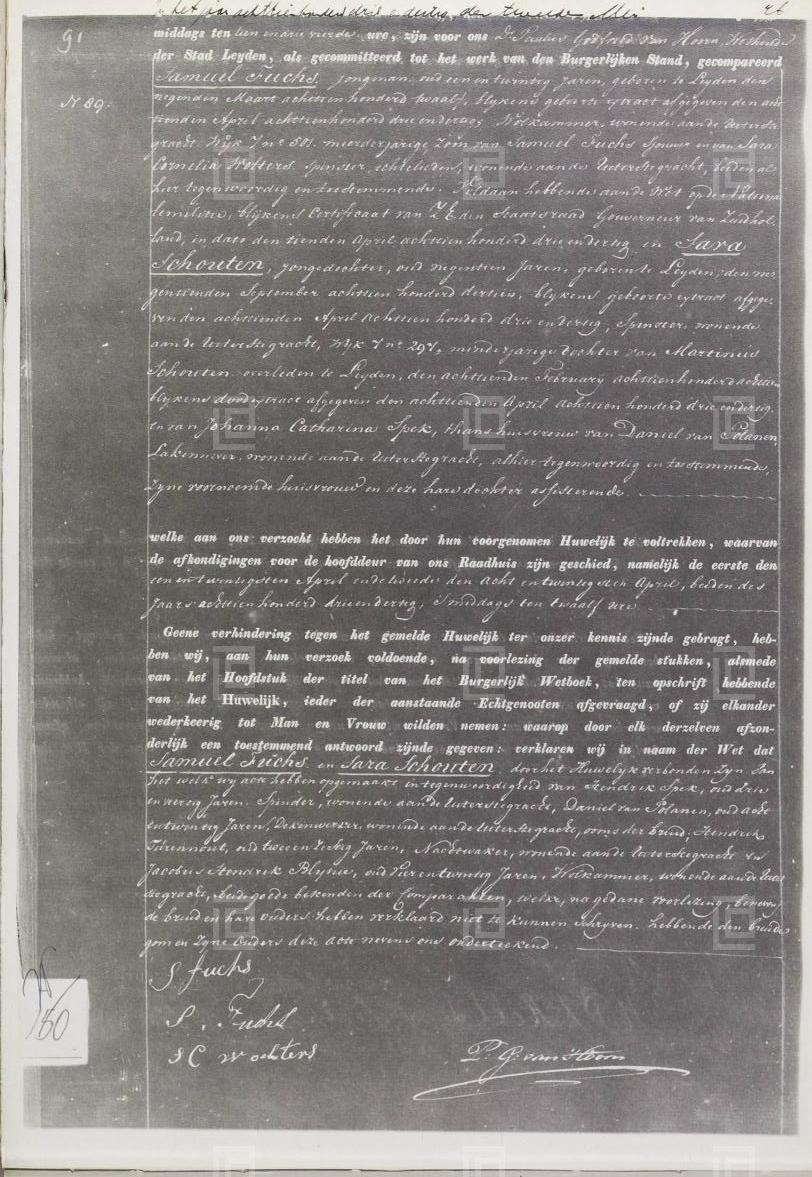 In het jaar achttien honderd drie en dertig, den tweede Mei
26
91
middags ten tien en drie vierde ure, zijn voor ons Dr Paulus Godfried van Hoorn, Wethouder
der Stad Leyden, als gecommitteerd tot het werk van den Burgerlijken Stand, gecompareerd
Samuel Fuchs, jongman, oud een en twintig Jaren, geboren te Leyden den
N 89.
negenden Maart achttienhonderd twaalf, blykens geborte extract afgegeven den acht
tienden April achttienhonderd drie en dertig, Wolkammer, wonende aan de Uiterste
gracht, Wyk 7 no 501. meerderjarige Zoon van Samuel Fuchs Spouwer en van Sara
Cornelia Wolters, Spinster, echtelieden, wonende aan de Uiterstegracht, beiden al
hier tegenwoordig en toestemmende. Voldaan hebbende aan de Wet op de Nationa
lemilitie, blykens Certificaat van Z E den Staatsraad Gouverneur van Zuidhol
land, in dato den tienden April achttien honderd drie en dertig en Sara
Schouten, jongedochter, oud negentien Jaren, geboren te Leyden, den ne
gentienden September achttien honderd dertien, blykens geboorte extract afgege
ven den achttienden April achttien honderd drie en dertig, Spinster, wonende
aan de Uiterstegracht, Wyk 7 no 297, minderjarige dochter van Martinus
Schouten overleden te Leyden, den achttienden February achttienhonderd achttien
blykens doodextract afgegeven den achttienden April achttien honderd drie en dertig.
En van Johanna Catharina Spek, thans huisvrouw van Daniel van Polanen,
Lakenwever, wonende aan de Uiterstegracht, alhier tegenwoordig en toestemmende,
Zyne voornoemde huisvrouw en deze hare dochter assisterende.
welke aan ons verzocht hebben het door hun voorgenomen Huwelijk te voltrekken, waarvan
de afkondigingen voor de hoofddeur van ons Raadhuis zijn geschied, namelijk de eerste den
een en twintigsten April en de tweede den acht en twintigsten April, beiden des
Jaars achttien honderd drie en dertig, 's middags ten twaalf ure
Geene verhindering tegen het gemelde Huwelijk ter onzer kennis zijnde gebragt, heb-
ben wij, aan hun verzoek voldoende, na voorlezing der gemelde stukken, alsmede
van het Hoofdstuk der titel van het Burgerlijk Wetboek, ten opschrift hebbende
van het Huwelijk, ieder der aanstaande Echtgenooten afgevraagd, of zij elkander
wederkeerig tot Man en Vrouw wilden nemen: waarop door elk derzelven afzon-
derlijk een toestemmend antwoord zijnde gegeven: verklaren wij in naam der Wet dat
Samuel Fuchs en Sara Schouten door het Huwelyk verbonden Zyn. Van
het welk wy acte hebben opgemaakt in tegenwoordigheid van Hendrik Spek, oud drie
en veertig Jaren, Spinder, wonende aan de Uiterstegracht, Daniel van Polanen, oud acht
entwintig Jaren, Dekenwerker, wonende aan de Uiterstegracht, ooms der bruid, Hendrik
oud twee en Zestig Jaren, Nachtwaker, wonende aan de Uiterstegracht en
Jacobus Hendrik oud Vier en twintig Jaren, Wolkammer, wonende aan de Uiter
stegracht, beide goede bekenden der Comparanten, welke, na gedane voorlezing, benevens
de bruid en hare ouders hebben verklaard niet te kunnen Schryven. hebbende den bruide
gom en Zyne Ouders deze acte nevens ons onderteekend.
S Fuchs
S. Fuchs
S C Wochters
P. G. van Hoorn
150